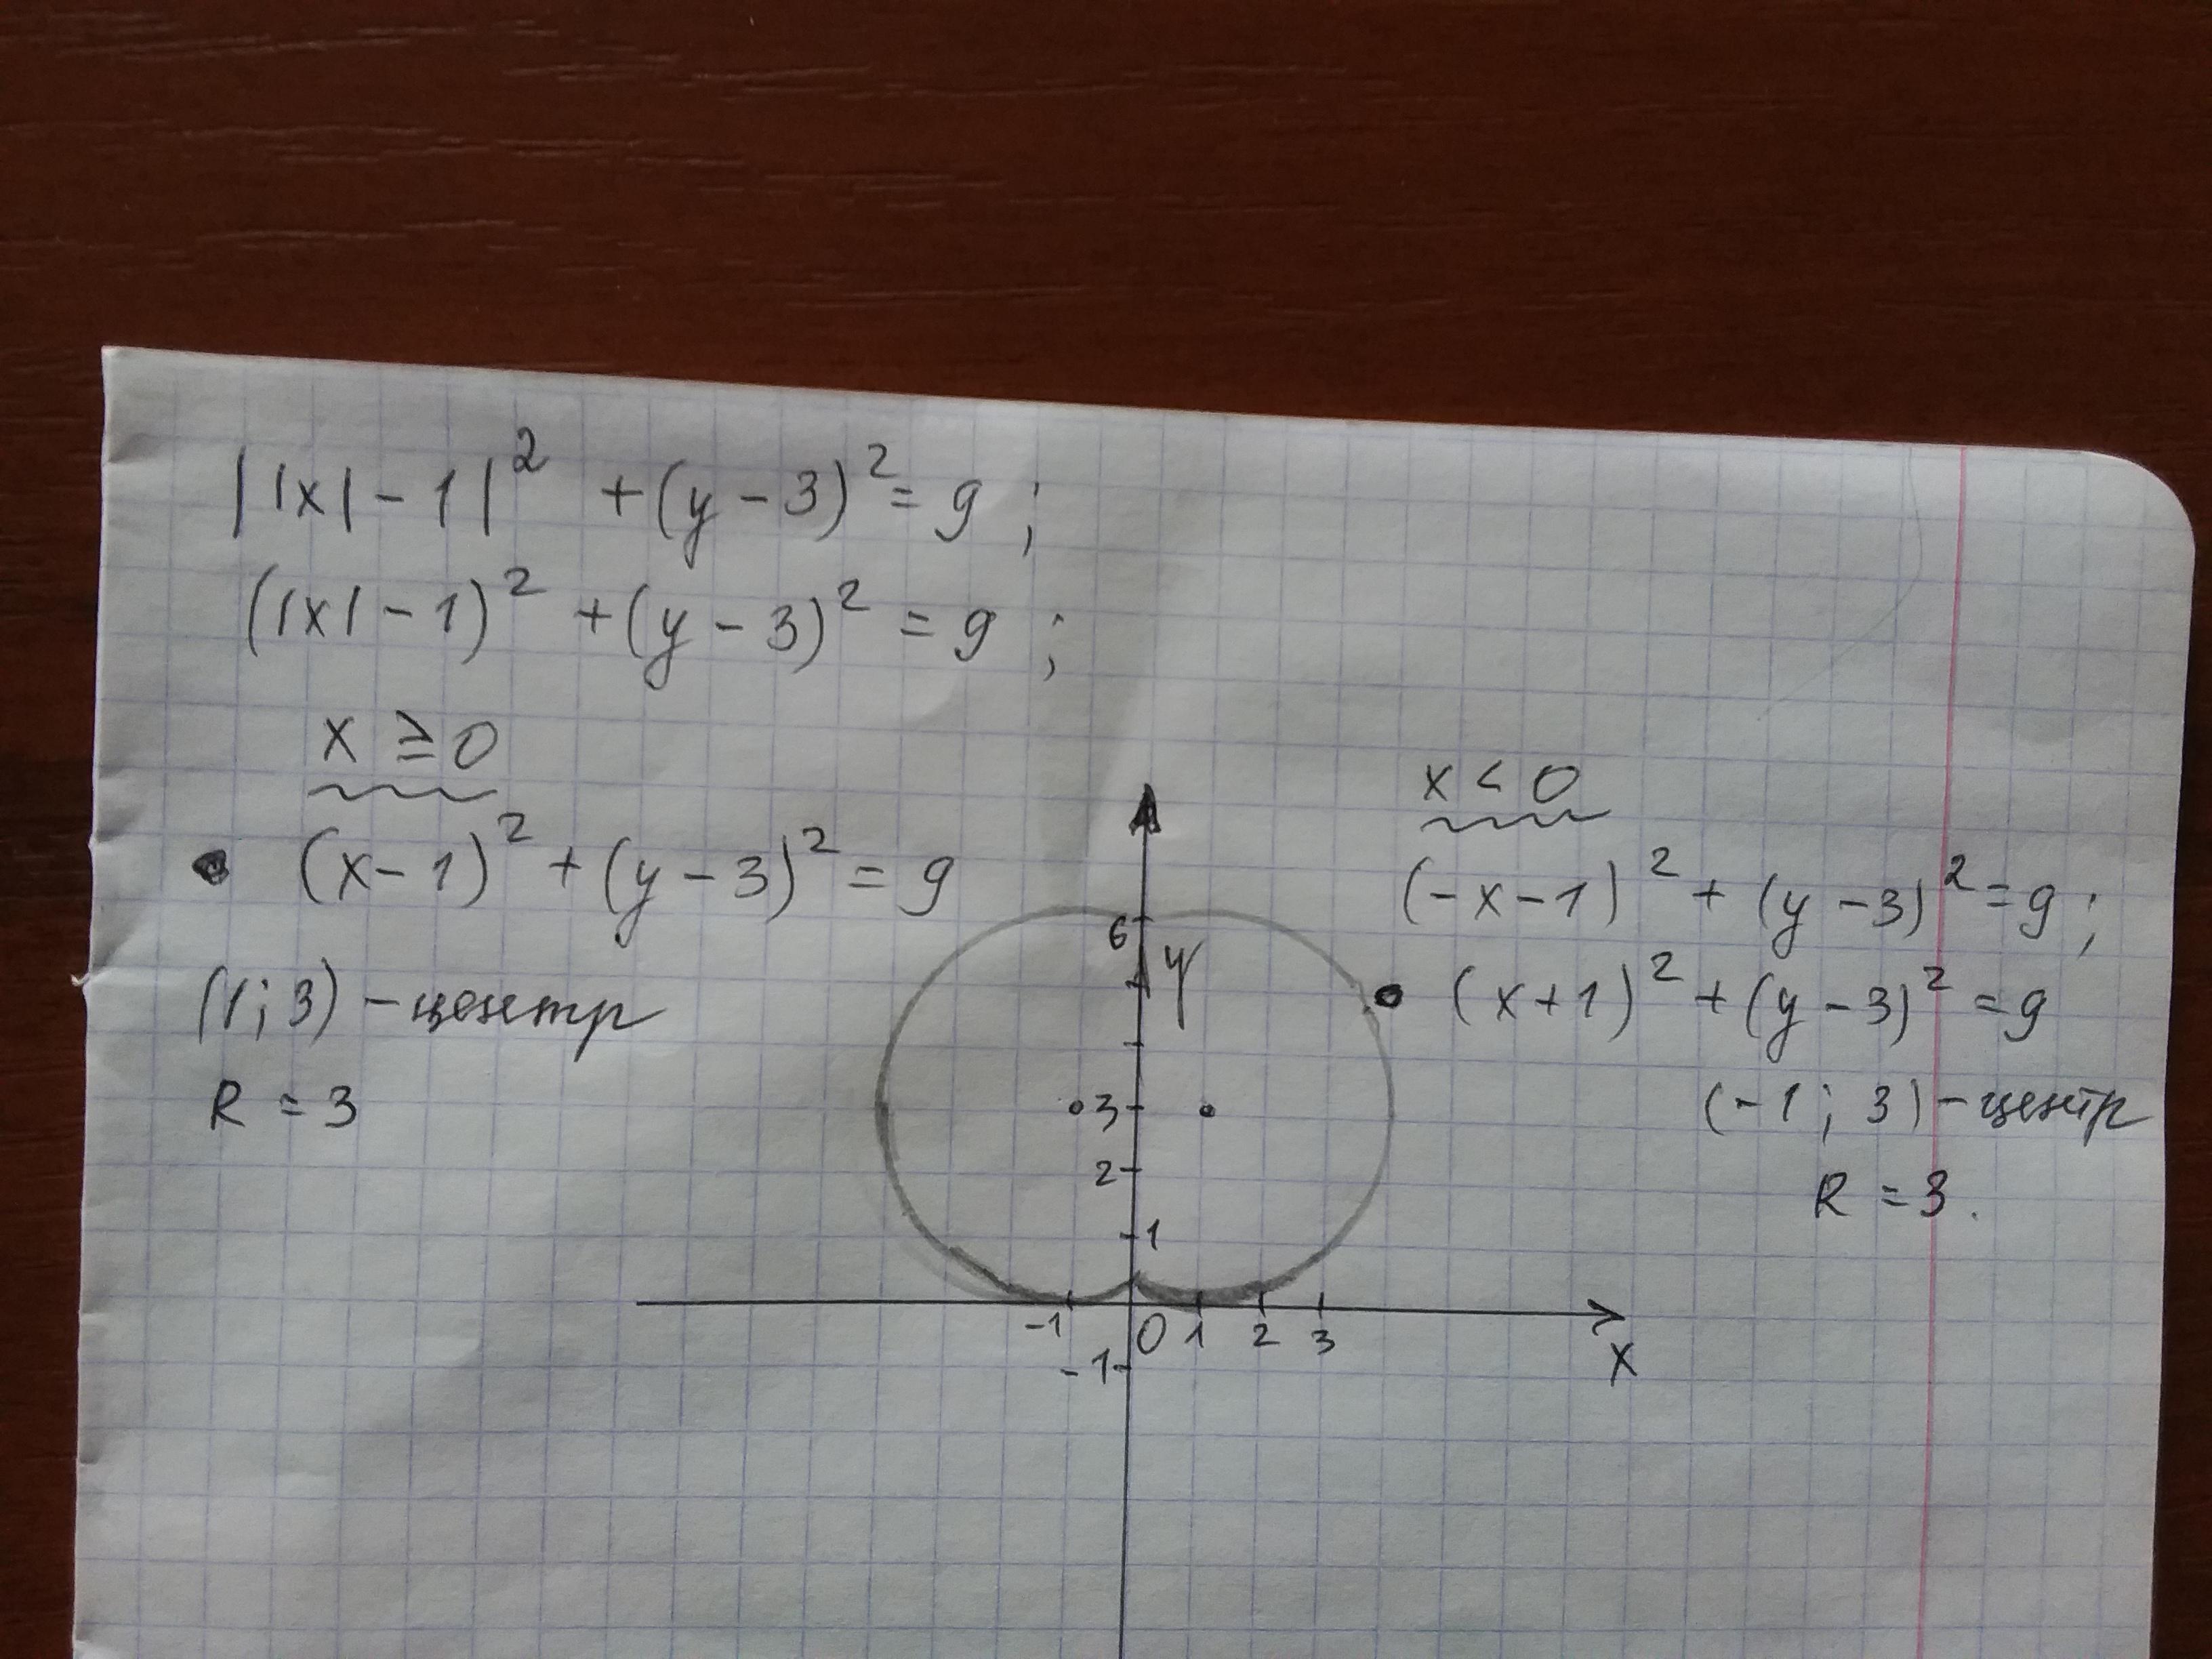 ||x|-1|² + (y-3)² = 9;
(|x|-1)² + (y-3)² = 9;
x ≥ 0
• (x-1)² + (y-3)² = 9
(1; 3) - центр
R = 3
x < 0
(-x-1)² + (y-3)² = 9;
• (x+1)² + (y-3)² = 9
(-1; 3) - центр
R = 3.
6
y
3
2
1
-1 0 1 2 3
-1
x